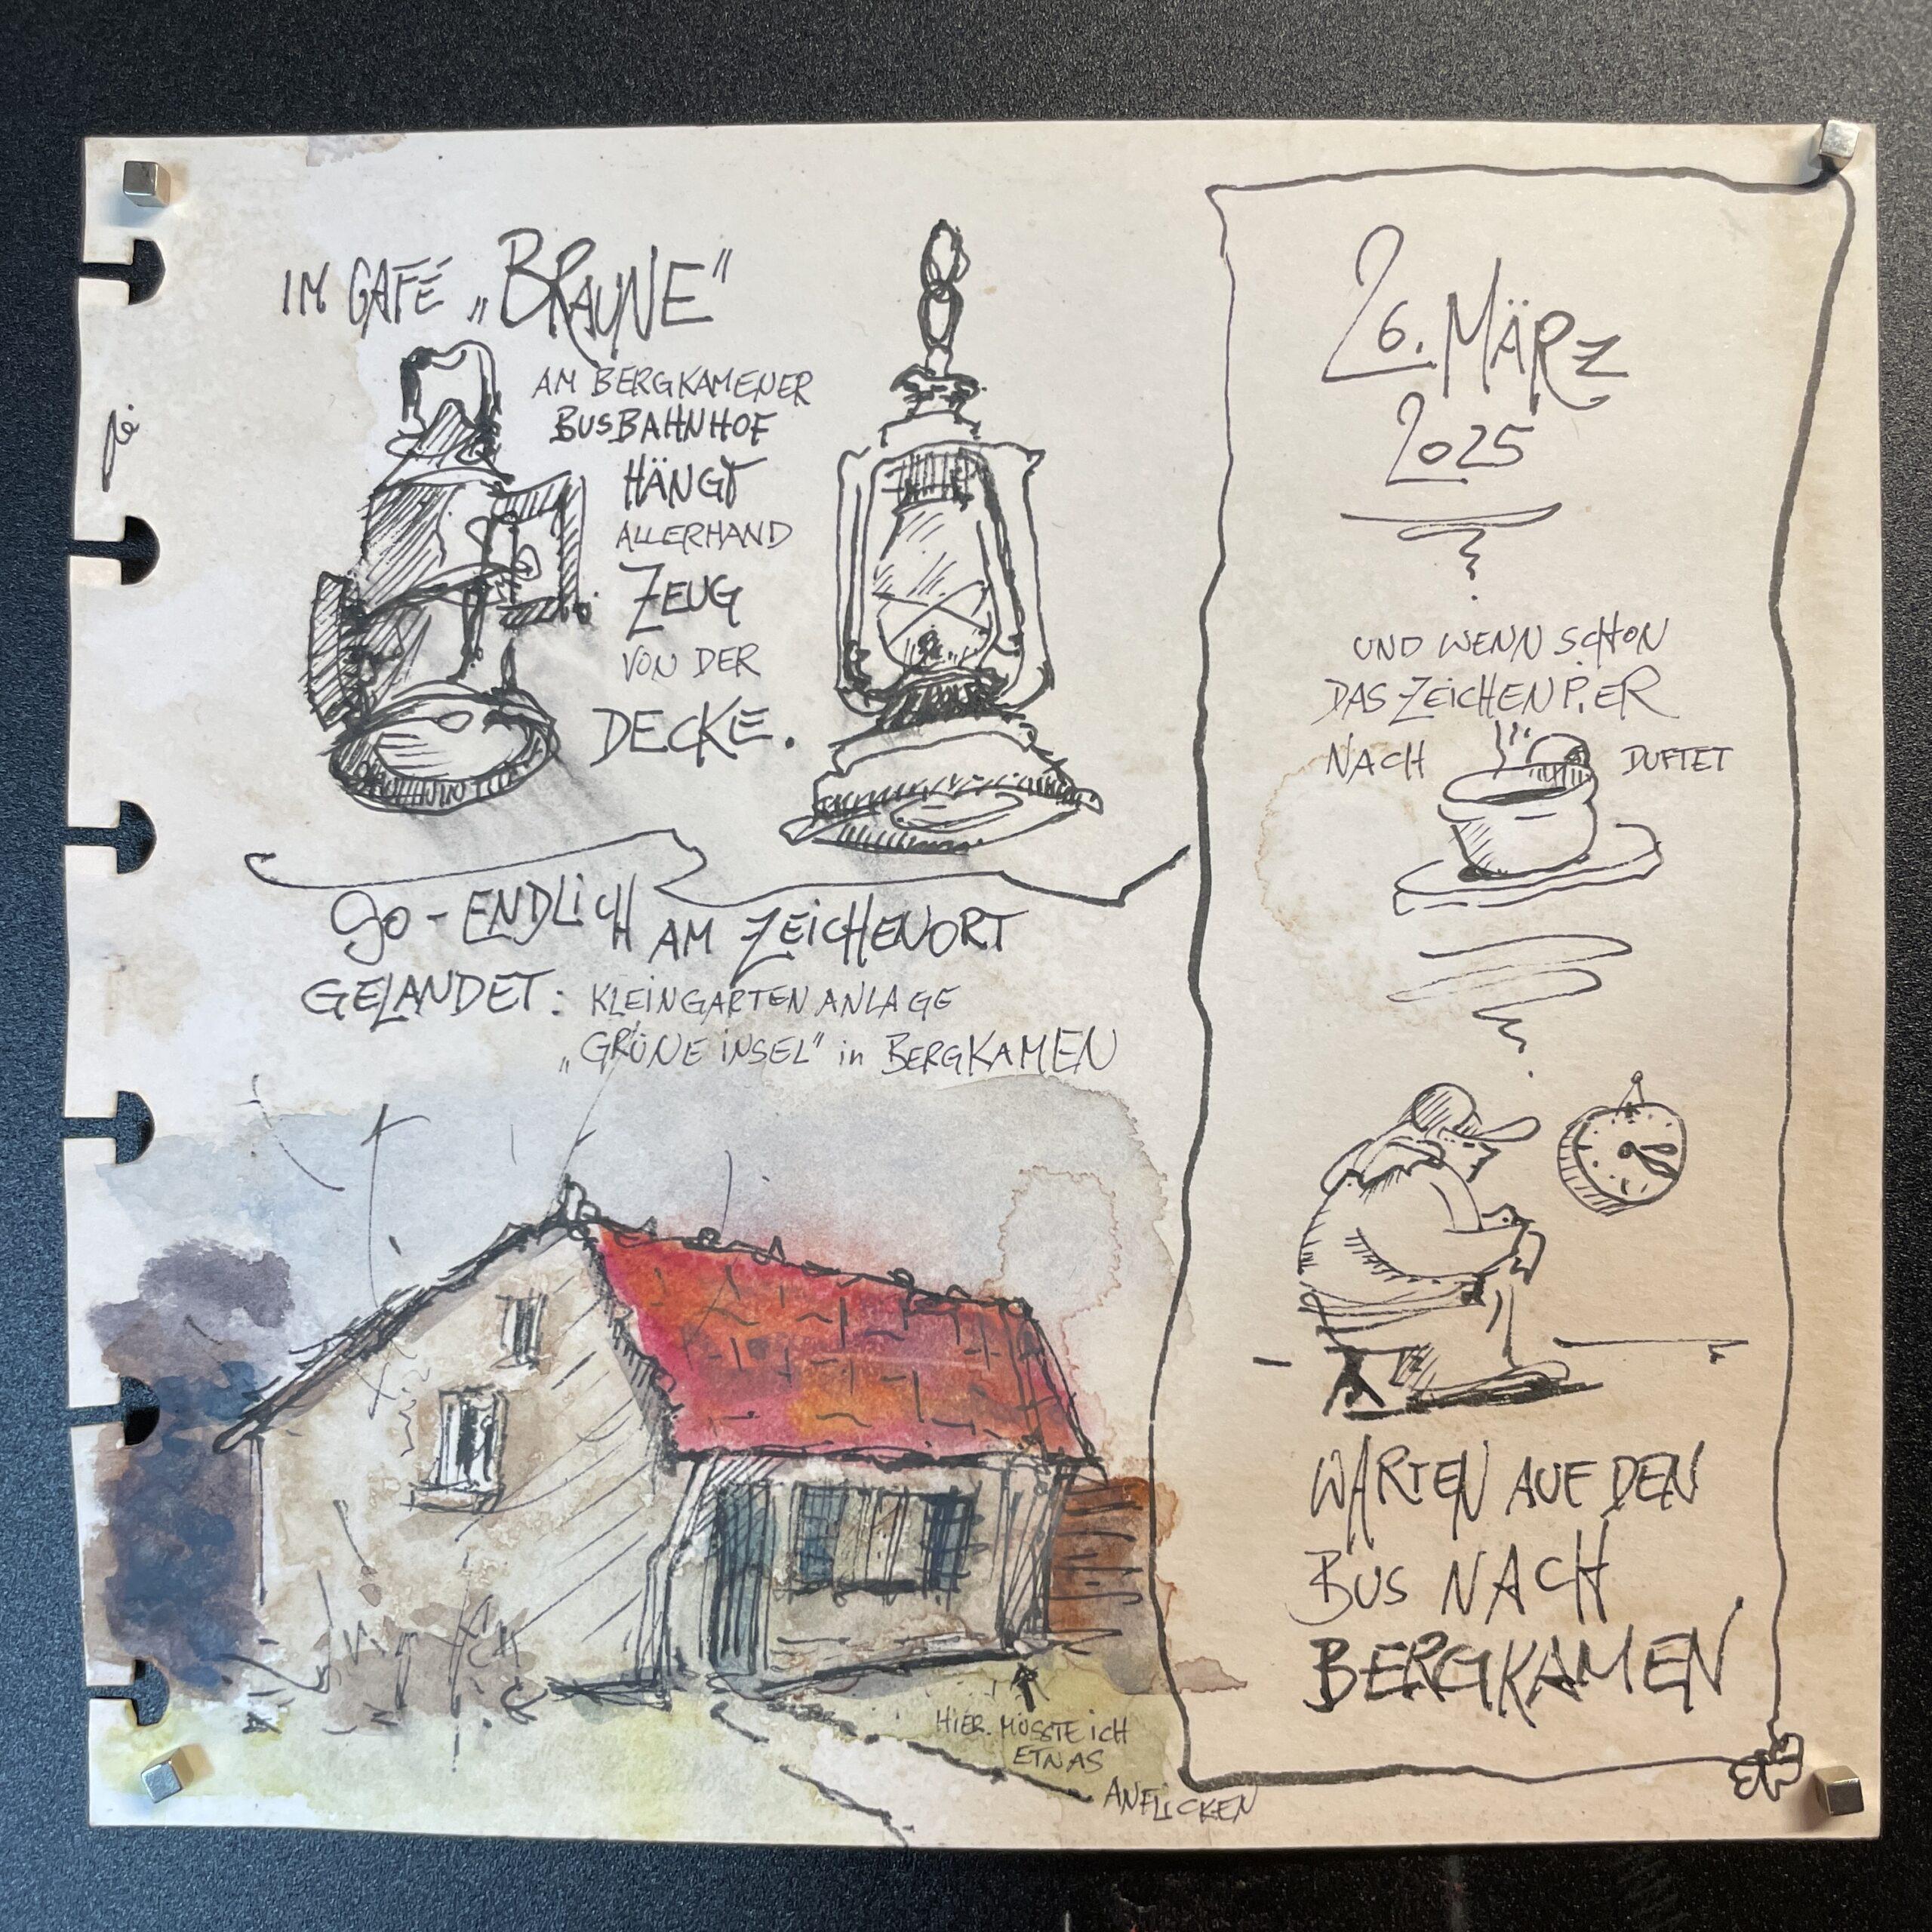 IM CAFÉ „BRAUNE"
AM BERGKAMENER
BUSBAHNHOF
HÄNGT
ALLERHAND
ZEUG
VON DER
DECKE.
SO - ENDLICH AM ZEICHENORT
GELANDET: KLEINGARTENANLAGE
„GRÜNE INSEL" in BERGKAMEN
HIER MÜSSTE ICH
ETWAS
ANFLICKEN
26. MÄRZ
2025
UND WENN SCHON
DAS ZEICHENP.ER
NACH DUFTET
WARTEN AUF DEN
BUS NACH
BERGKAMEN